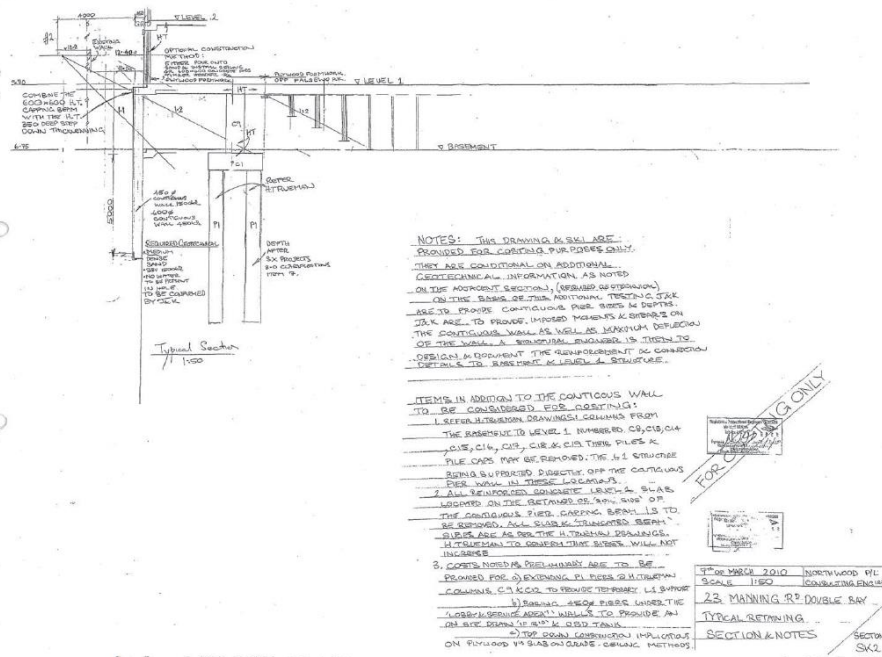 4000
▽ LEVEL 2
EXISTING
WALL
HT
OPTIONAL CONSTRUCTION
METHOD:
PLYWOOD FORMWORK
OFF FALSEWORK
▽ LEVEL 1
HT
COMBINE THE
600x600 H.T.
CAPPING BEAM
WITH THE H.T.
350 DEEP STEP
DOWN THICKENING
1:1
1:2
1:2
C9
HT
▽ BASEMENT
5000
450 ø
CONTIGUOUS
600ø
CONTIGUOUS
WALL
P1
P1
REFER
H.TRUEMAN
DEPTH
AFTER
SX PROJECTS
ITEM 7.
REQUIRED GEOTECHNICAL
MEDIUM
DENSE
SAND
NO WATER
TO BE PRESENT
IN HOLE
TO BE CONFIRMED
BY J&K
Typical Section
1:50
NOTES: THIS DRAWING & SK1 ARE
PROVIDED FOR COSTING PURPOSES ONLY.
THEY ARE CONDITIONAL ON ADDITIONAL
GEOTECHNICAL INFORMATION, AS NOTED
ON THE ADJACENT SECTION, (REQUIRED GEOTECHNICAL)
ON THE BASIS OF THIS ADDITIONAL TESTING J&K
ARE TO PROVIDE CONTIGUOUS PIER SIZES & DEPTHS.
J&K ARE TO PROVIDE IMPOSED MOMENTS & SHEARS ON
THE CONTIGUOUS WALL AS WELL AS MAXIMUM DEFLECTION
OF THE WALL. A STRUCTURAL ENGINEER IS THEN TO
DESIGN & DOCUMENT THE REINFORCEMENT & CONNECTION
DETAILS TO BASEMENT & LEVEL 1 STRUCTURE.
ITEMS IN ADDITION TO THE CONTIGOUS WALL
TO BE CONSIDERED FOR COSTING:
1. REFER H.TRUEMAN DRAWINGS: COLUMNS FROM
THE BASEMENT TO LEVEL 1 NUMBERED C8, C13, C14
, C15, C16, C17, C18 & C19 THEIR PILES &
PILE CAPS MAY BE REMOVED. THE L1 STRUCTURE
BEING SUPPORTED DIRECTLY OFF THE CONTIGUOUS
PIER WALL IN THESE LOCATIONS.
2. ALL REINFORCED CONCRETE LEVEL 1 SLAB
LOCATED ON THE RETAINED OR "SOIL SIDE" OF
THE CONTIGUOUS PIER CAPPING BEAM IS TO
BE REMOVED. ALL SLAB & "TRUNCATED BEAM"
SIZES ARE AS PER THE H.TRUEMAN DRAWINGS.
H.TRUEMAN TO CONFIRM THAT SIZES WILL NOT
INCREASE
3. COSTS NOTED AS PRELIMINARY ARE TO BE
PROVIDED FOR a) EXTENDING P1 PIERS & H.TRUEMAN
COLUMNS C9 & C12 TO PROVIDE TEMPORARY L1 SUPPORT
b) BORING 450ø PIERS UNDER THE
"LOBBY & SERVICE AREA" WALLS TO PROVIDE AN
ON SITE DRAIN & OSD TANK
c) TOP DOWN CONSTRUCTION IMPLICATIONS
ON PLYWOOD VS SLAB ON GRADE CEILING METHODS.
FOR COSTING ONLY
9TH OF MARCH 2010 NORTHWOOD P/L
SCALE 1:50 CONSULTING ENGIN
23 MANNING RD DOUBLE BAY
TYPICAL RETAINING
SECTION & NOTES
SECTION
SK2